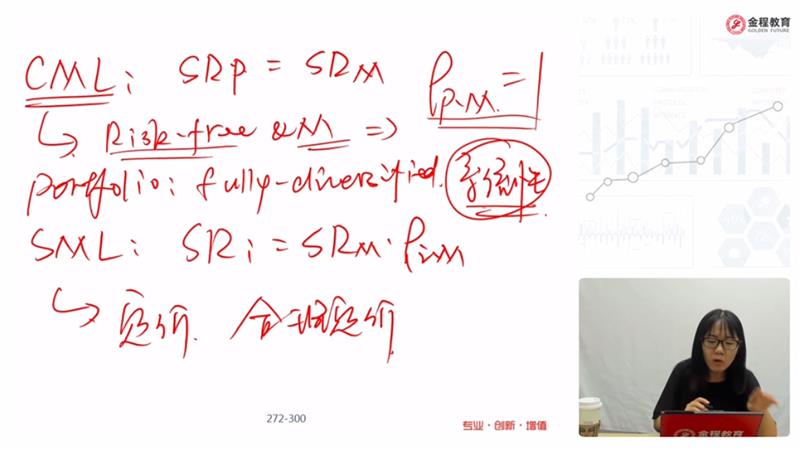 金程教育
GOLDEN FUTURE
CML: SRp = SRM ρp.M = 1
↳ Risk-free & M ⇒
portfolio: fully-diversified.
SML: SRi = SRM · ρiM
↳ 定价. 合理定价.
272-300
专业·创新·增值
金程教育